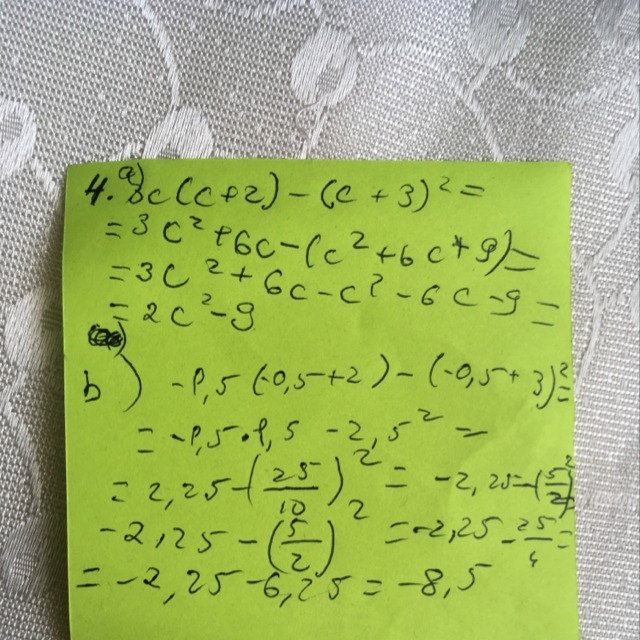 4. a) 3c(c+2)-(c+3)²=
=3c²+6c-(c²+6c+9)=
=3c²+6c-c²-6c-9=
=2c²-9
b) -1,5(-0,5+2)-(-0,5+3)²=
=-1,5·1,5-2,5²=
=2,25-(25/10)²=-2,25-(5/2)²
-2,25-(5/2)²=-2,25-25/4=
=-2,25-6,25=-8,5